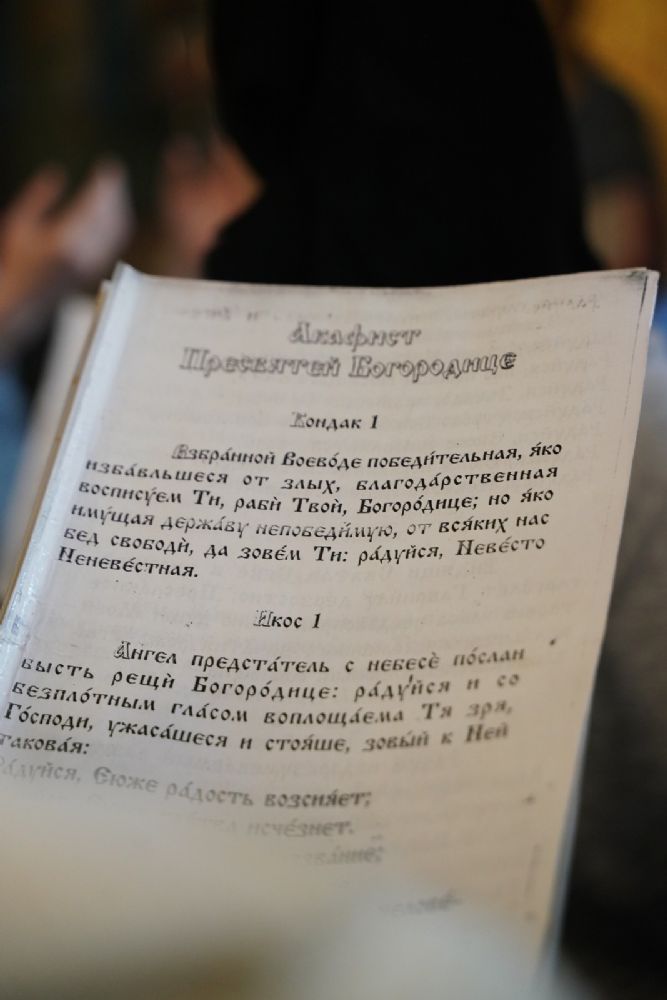 Акафист
Пресвятей Богородице
Кондак 1
Взбра́нной Воево́де победи́тельная, я́ко
изба́вльшеся от злых, благода́рственная
восписуем Ти, раби́ Твои́, Богоро́дице; но я́ко
иму́щая держа́ву непобеди́мую, от вся́ких нас
бед свободи́, да зове́м Ти: ра́дуйся, Неве́сто
Неневе́стная.
Икос 1
А́нгел предста́тель с небесѐ по́слан
бысть рещѝ Богоро́дице: ра́дуйся и со
безпло́тным гла́сом воплоща́ема Тя зря,
Го́споди, ужаса́шеся и стоя́ше, зовы́й к Ней
такова́я:
Ра́дуйся, Е́юже ра́дость возсия́ет;
исче́знет.